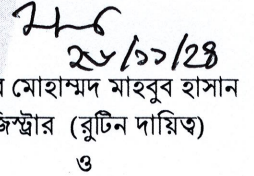 ২৮/১১/২৪
মোহাম্মদ মাহবুব হাসান
জিস্ট্রার (রুটিন দায়িত্ব)
ও